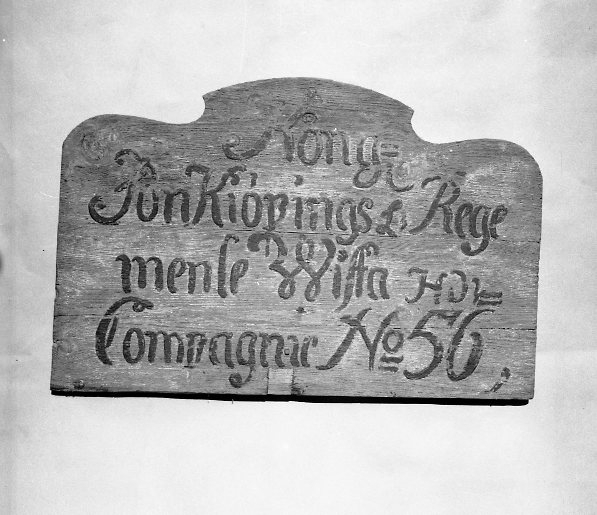 Kong:
JonKiöpings L. Rege
mente Wissa Hdr=
Compagnie No 56